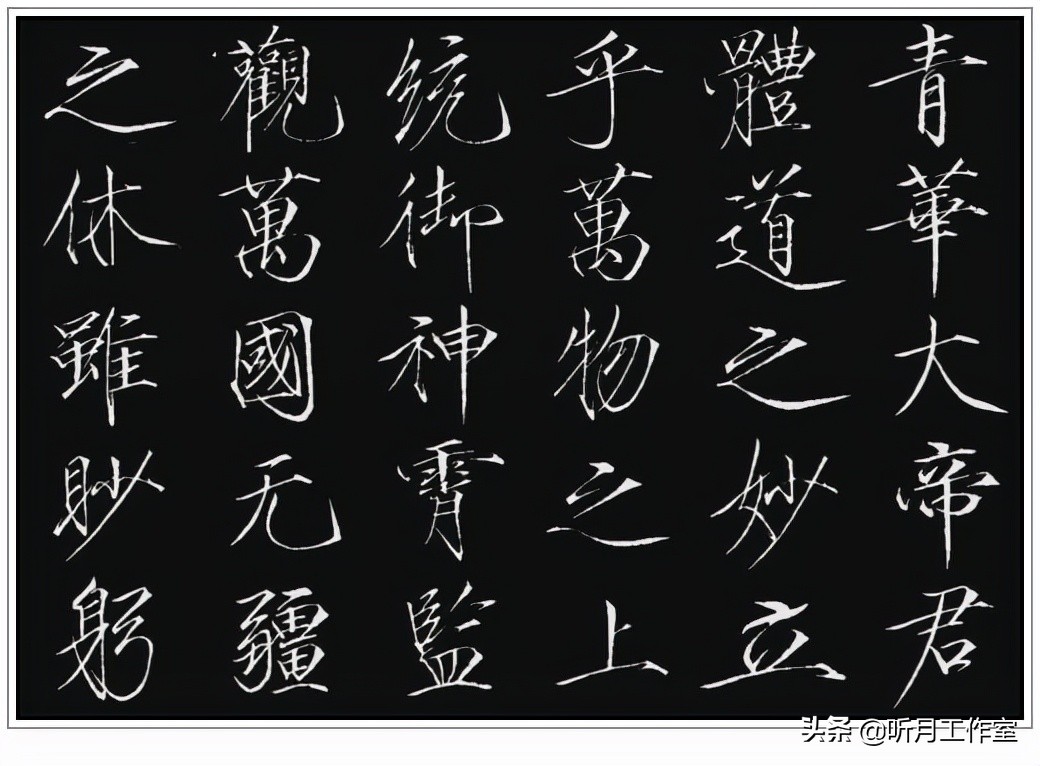 青華大帝君
體道之妙立
乎萬物之上
统御神霄監
觀萬國无疆
之休雖眇躬
头条 @听月工作室